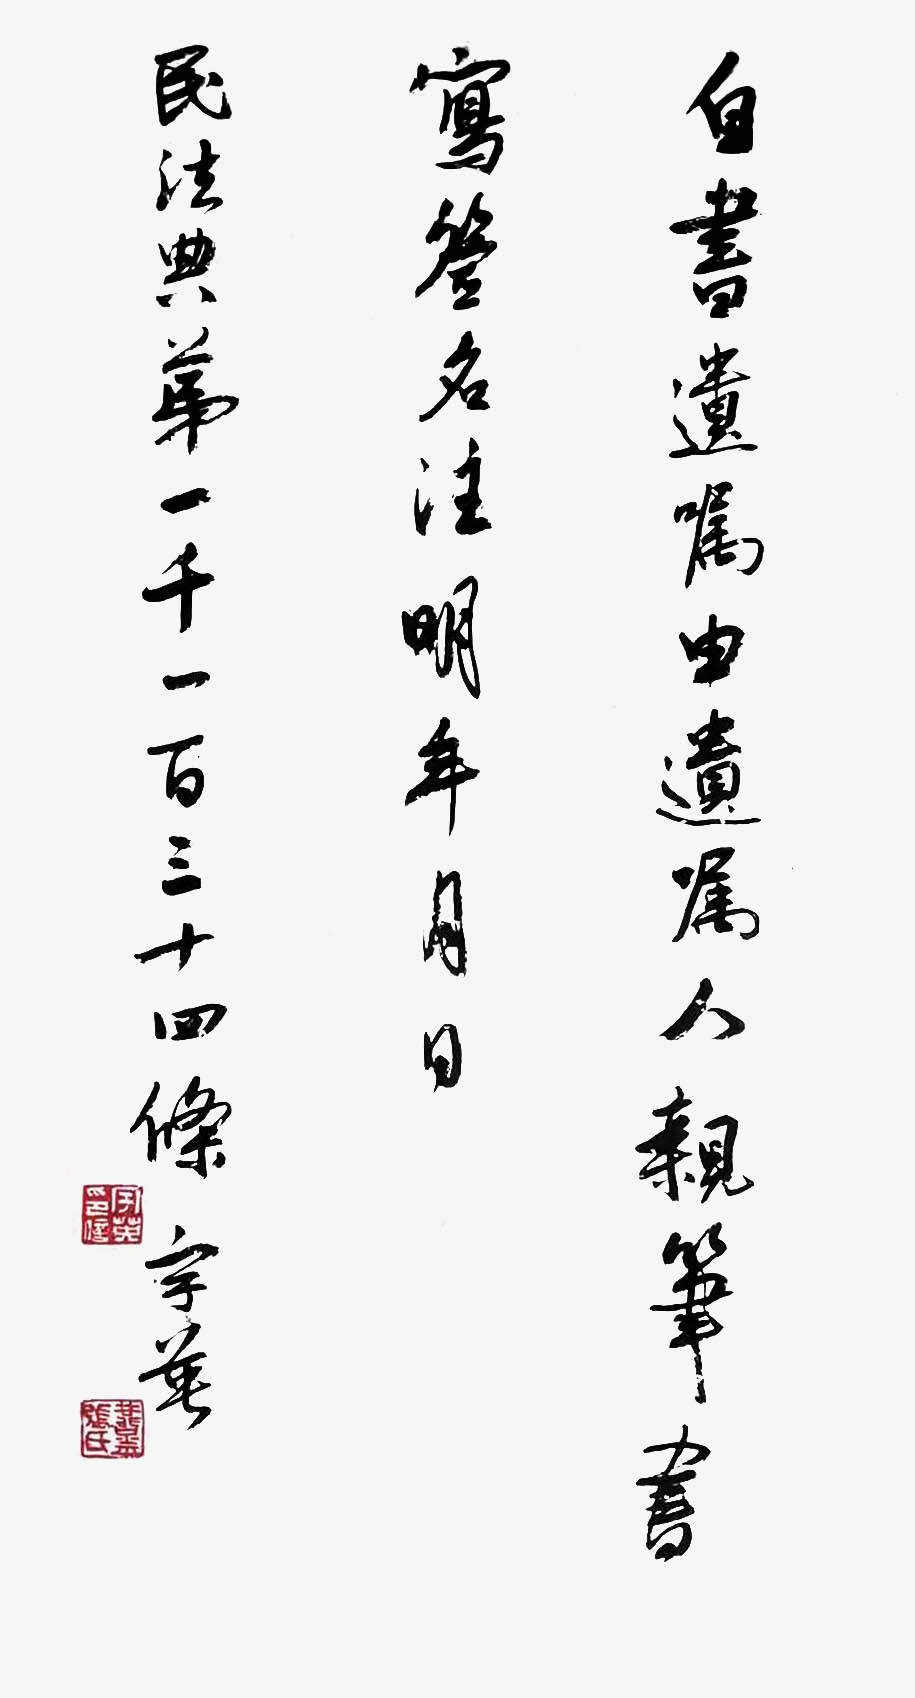 自書遺嘱由遺嘱人親筆書
寫簽名注明年月日
民法典第一千一百三十四條 宇英
宇英印信